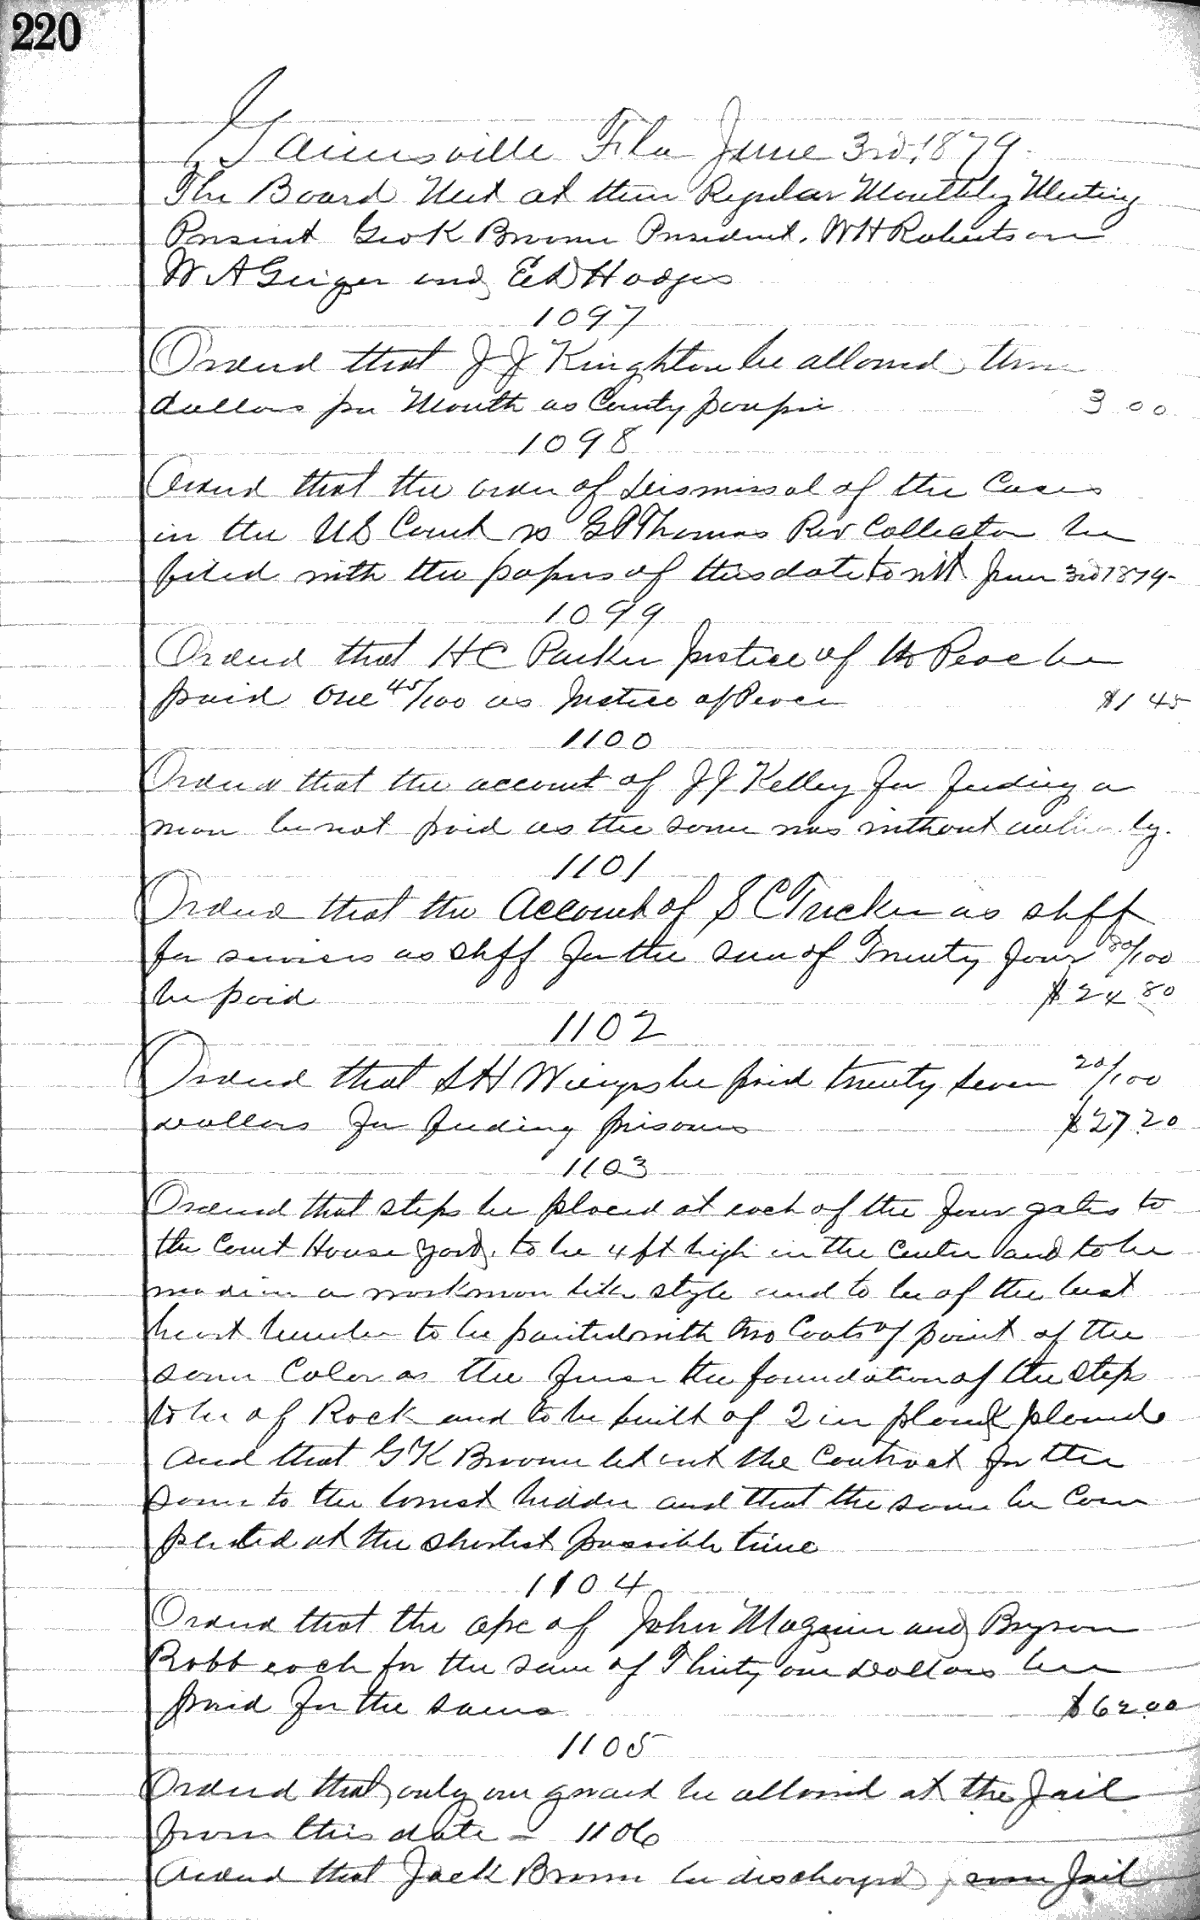 220
Gainesville Fla June 3rd, 1879.
The Board Met at their Regular Monthly Meeting
Present Geo K Broome President. W H Robertson
W A Geiger and E D Hodges
1097
Ordered that J J Knighton be allowed three
dollars per Month as County pauper 3 00
1098
Ordered that the order of dismissal of the Cases
in the US Court vs Thomas Rev Collector be
filed with the papers of this date to wit June 3rd 1879-
1099
Ordered that H C Parker Justice of the Peace be
paid One 45/100 as Justice of Peace $1 45
1100
Ordered that the account of J J Kelley for feeding a
man be not paid as the same was without authority.
1101
Ordered that the Account of S C Tucker as shff
for services as shff for the sum of Twenty four 80/100
be paid $24 80
1102
Ordered that S H be paid twenty seven 20/100
dollars for feeding prisoners $27.20
1103
Ordered that steps be placed at each of the four gates to
the Court House yard. to be 4 ft high in the center and to be
made in a workman like style and to be of the best
heart lumber to be painted with two Coats of paint of the
same Color as the fence the foundation of the steps
to be of Rock and to be built of 2 in plank planed
and that G K Broome let out the Contract for the
same to the lowest bidder and that the same be Com
pleted at the shortest possible time
1104
Ordered that the a/c of John Maguire and Bryson
Robb each for the sum of Thirty one Dollars be
paid for the same $62.00
1105
Ordered that only one guard be allowed at the Jail
from this date - 1106
Ordered that Jack Brown be discharged from Jail